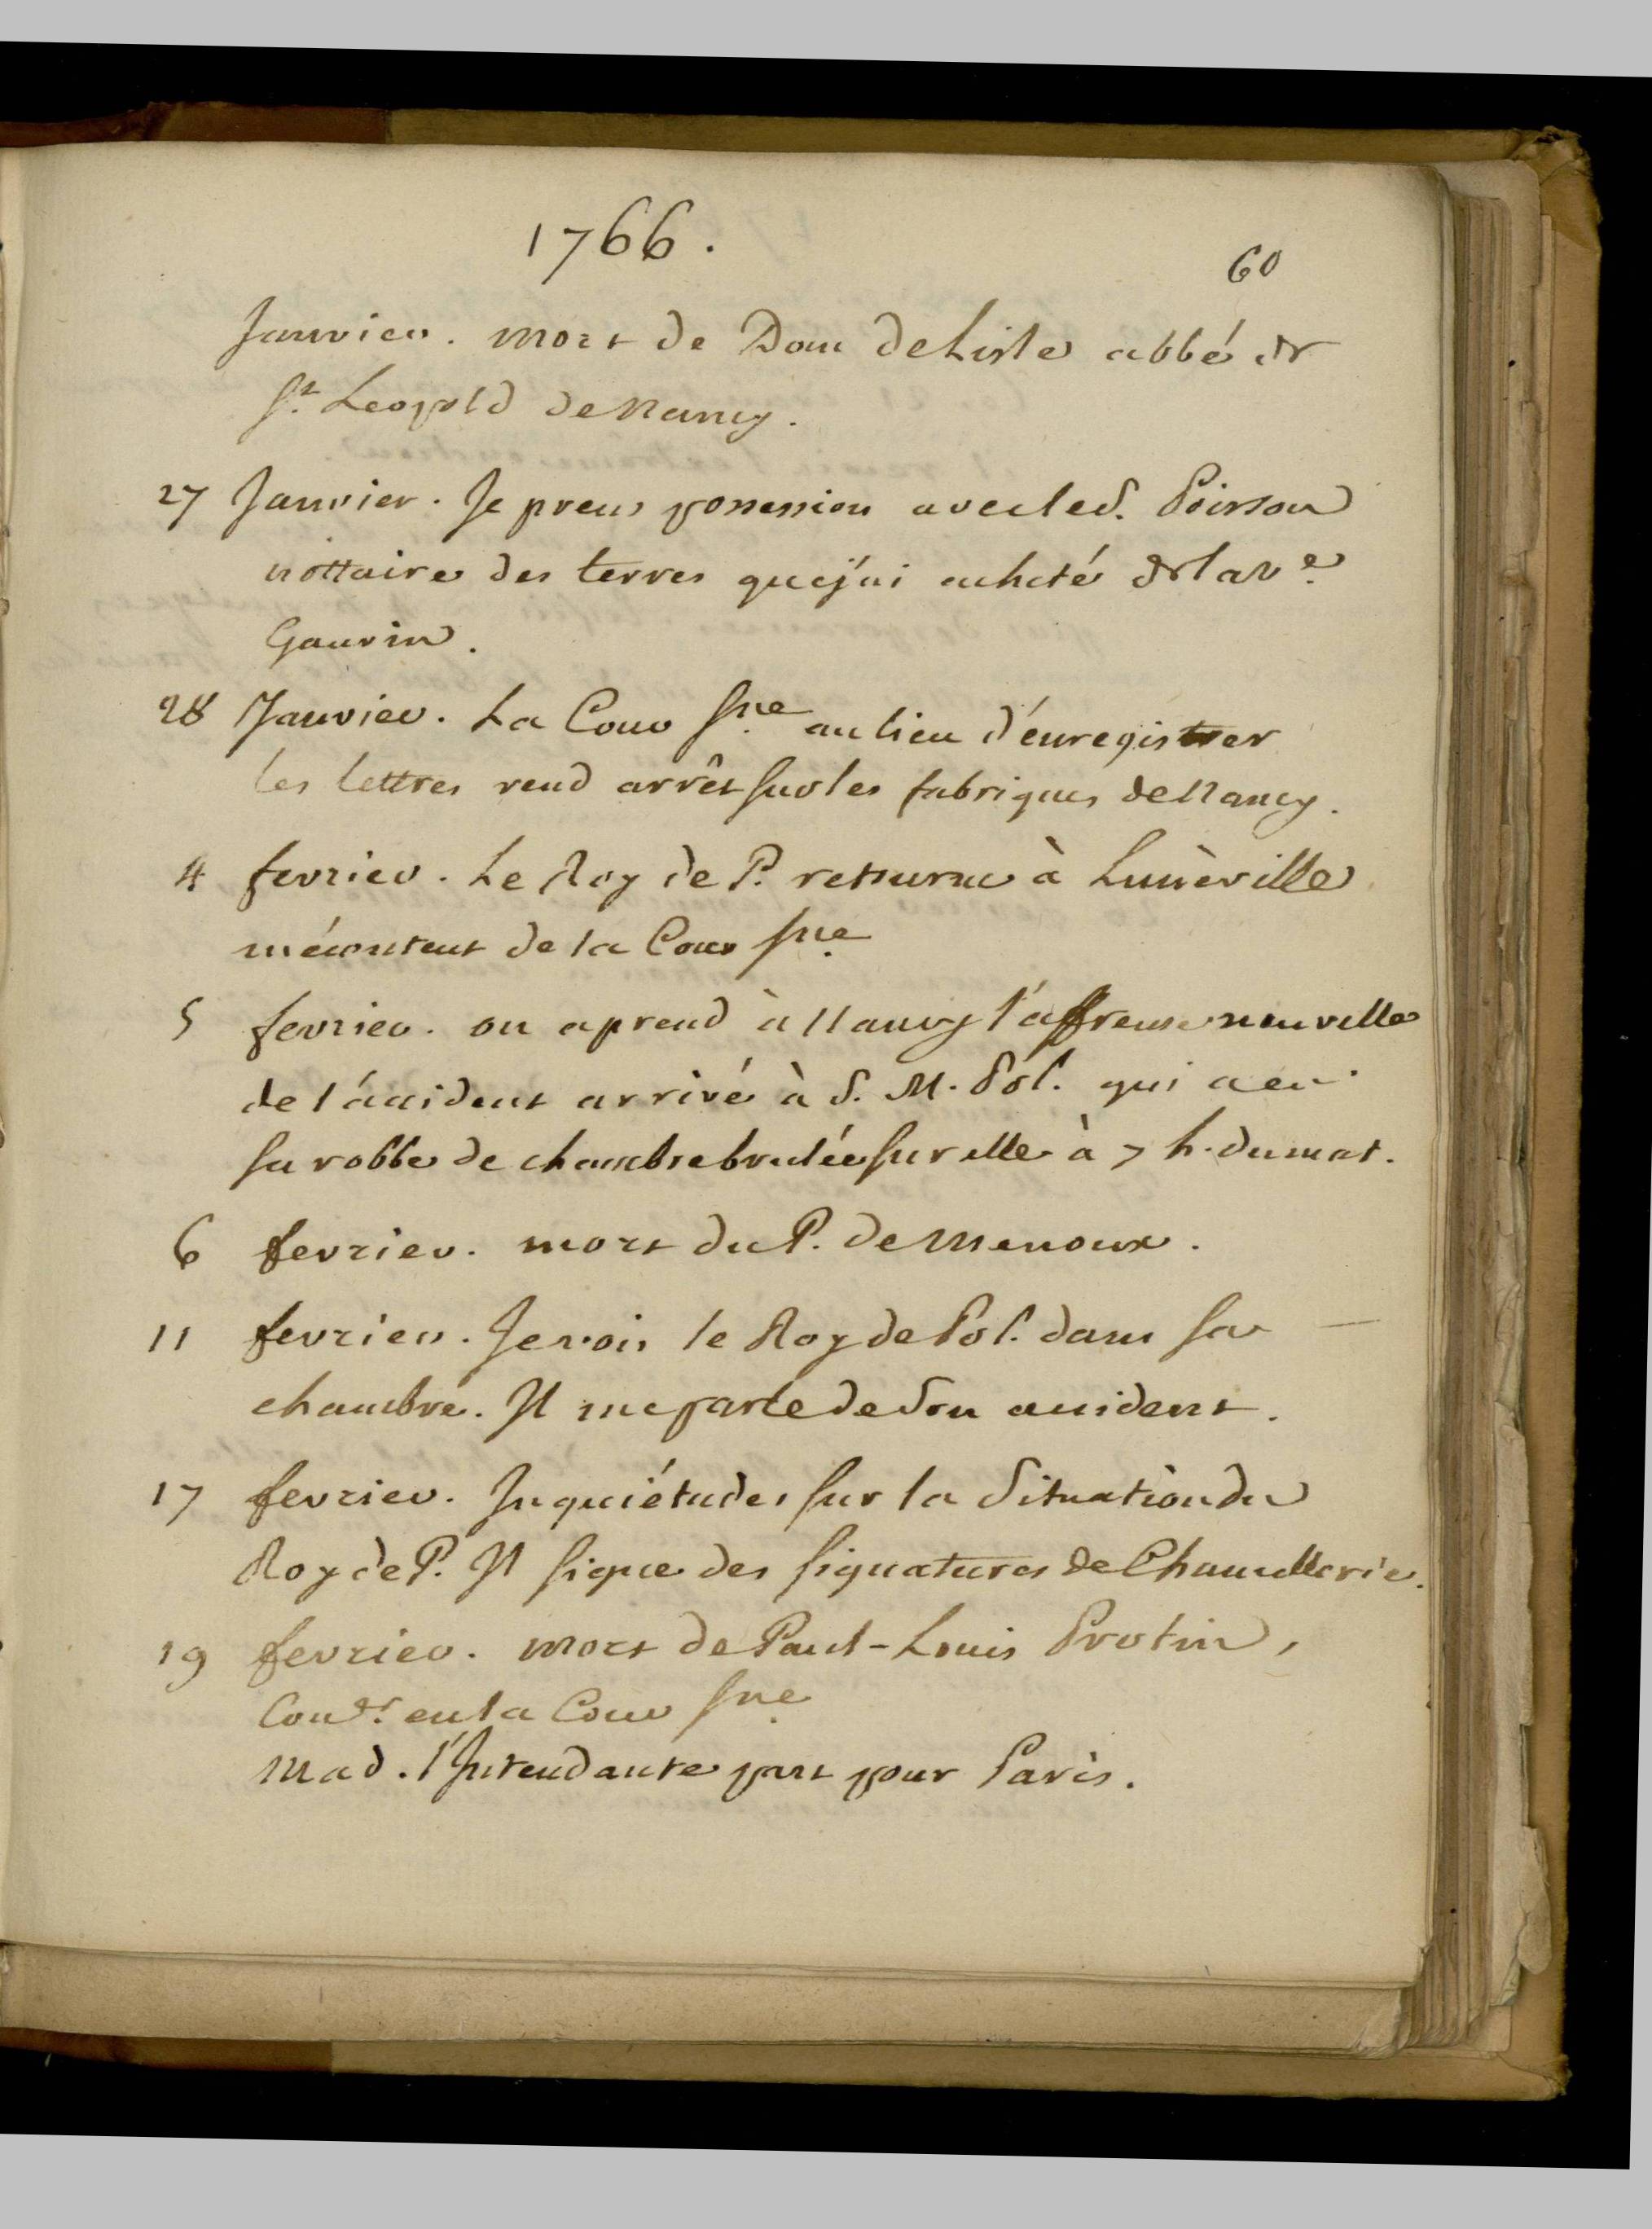 1766.
60
Janvier. mort de Dom de Lisle abbé de
St. Leopold de Nancy.
27 Janvier. Je prens possession avec le S. Poirson
nottaire des terres que j'ai acheté de la Ve.
Gauvin.
28 Janvier. La Cour Sne. au lieu d'enregistrer
les lettres rend arrêt sur les fabriques de Nancy.
4 fevrier. Le Roy de P. retourne à Lunèville
mécontent de la Cour Sne.
5 fevrier. on aprend à Nancy l'affreuse nouvelle
de l'accident arrivé à S. M. Pol. qui a eu
sa robbe de chambre brulée sur elle à 7 h. du mat.
6 fevrier. mort du P. de Menoux.
11 fevrier. Je vois le Roy de Pol. dans sa —
chambre. Il me parle de son accident.
17 fevrier. Inquiétudes sur la Situation du
Roy de P. Il signe des signatures de Chancellerie.
19 fevrier. mort de Paul-Louis Protin,
Con.er en la Cour Sne.
Mad. l'Intendante part pour Paris.